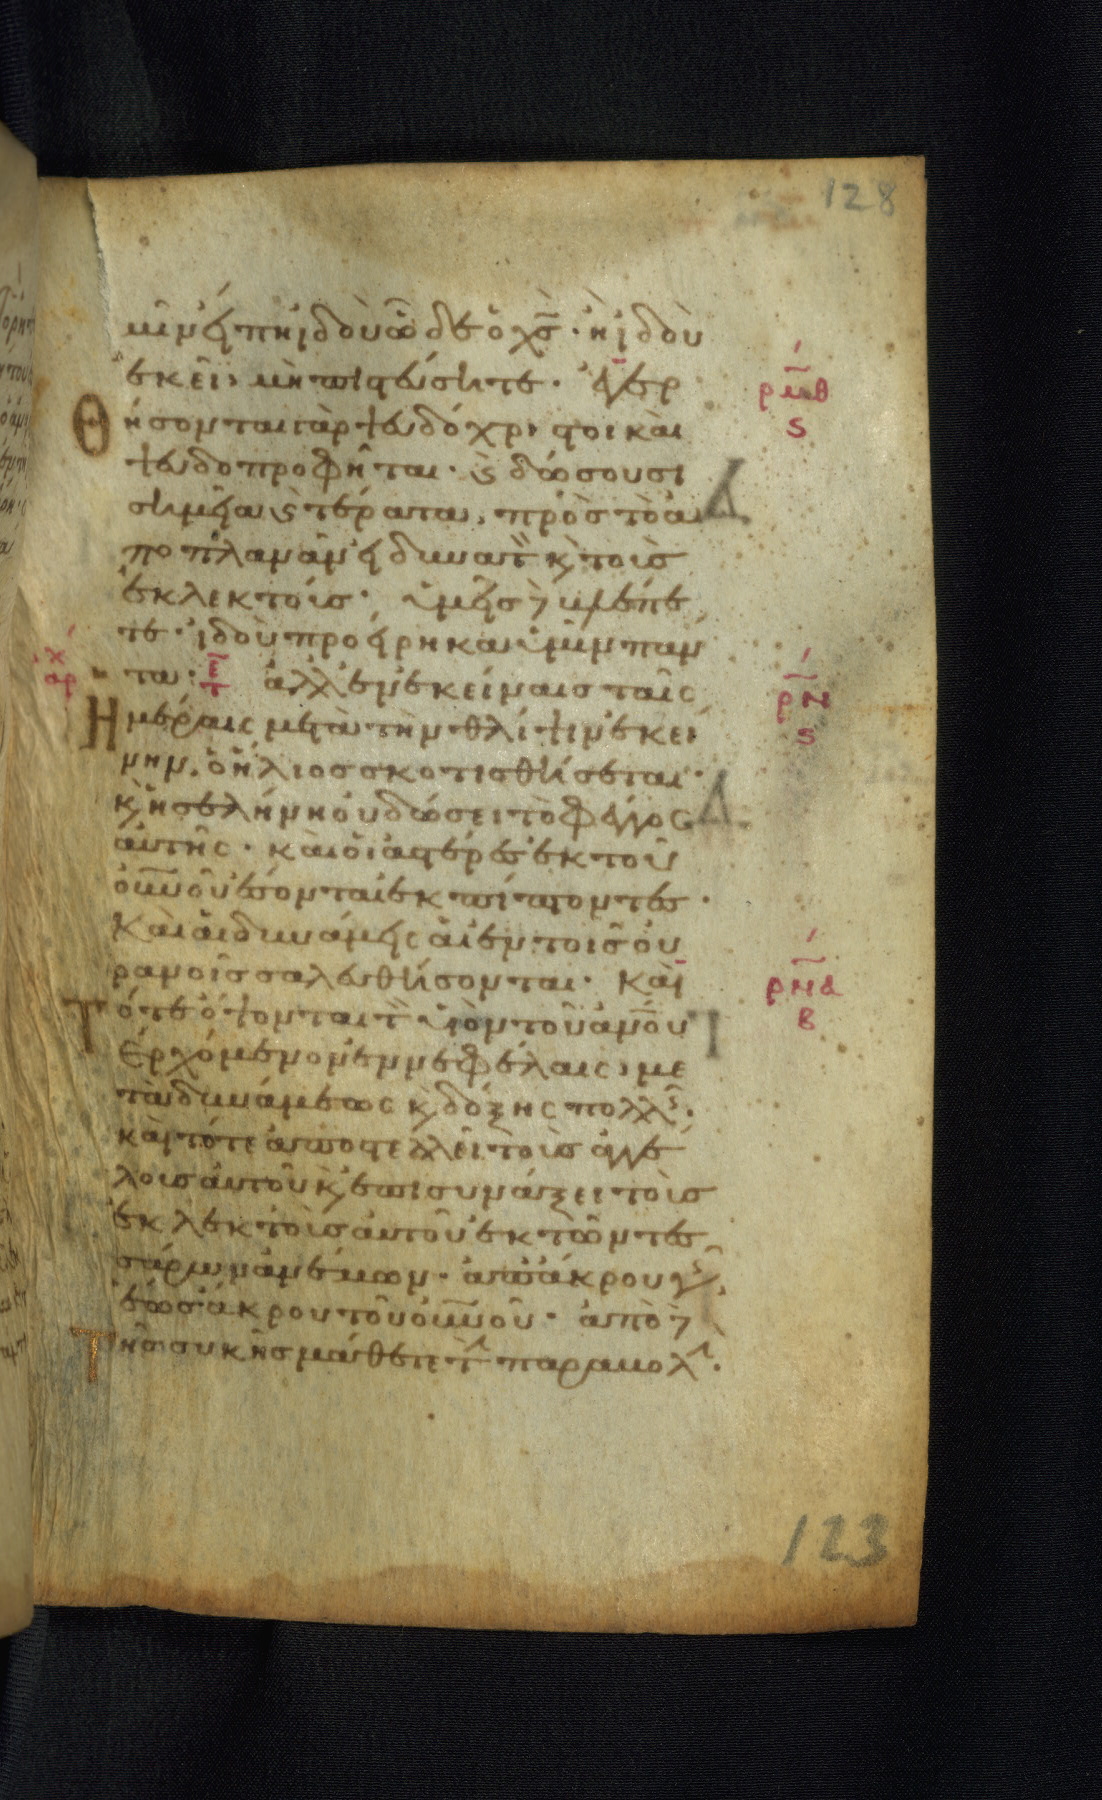 128
μῖν εἴπη ἰδοὺ ὧδε ὁ χς̄· ἢ ἰδοὺ
ἐκεῖ, μὴ πιστεύσητε· ἐγερ
ρμθ
ς
Θήσονται γὰρ ψευδόχριστοι καὶ
ψευδοπροφῆται· ϗ δώσουσι
σημεῖα ϗ τέρατα, πρὸς τὸ ἀ
ποπλανᾶν εἰ δυνατὸν ϗ τοὺς
ἐκλεκτούς· ὑμεῖς δὲ βλέπε
τε· ἰδοὺ προείρηκα ὑμῖν πάν
τα· ἀλλ' ἐν ἐκείναις ταῖς
ρν
ς
Ἡμέραις μετὰ τὴν θλίψιν ἐκεί
νην, ὁ ἥλιος σκοτισθήσεται·
ϗ ἡ σελήνη οὐ δώσει τὸ φέγγος
αὐτῆς· καὶ οἱ ἀστέρες ἐκ τοῦ
οὐνοῦ ἔσονται ἐκπίπτοντες·
Καὶ αἱ δυνάμεις αἱ ἐν τοῖς οὐ
ρανοῖς σαλευθήσονται· Καὶ
ρνα
β
Τότε ὄψονται τὸν υἱὸν τοῦ ἀνου
Ἐρχόμενον ἐν νεφέλαις, με
τὰ δυνάμεως ϗ δόξης πολλῆς·
καὶ τότε ἀποστελλεῖ τοὺς ἀγγέ
λους αὐτοῦ ϗ ἐπισυνάξει τοὺς
ἐκλεκτοὺς αὐτοῦ ἐκ τῶν τεσ
σάρων ἀνέμων· ἀπ' ἄκρου γῆς,
ἕως ἄκρου τοῦ οὐνοῦ· ἀπὸ δὲ
Τῆς συκῆς μάθετε τὴν παραβολήν·
123